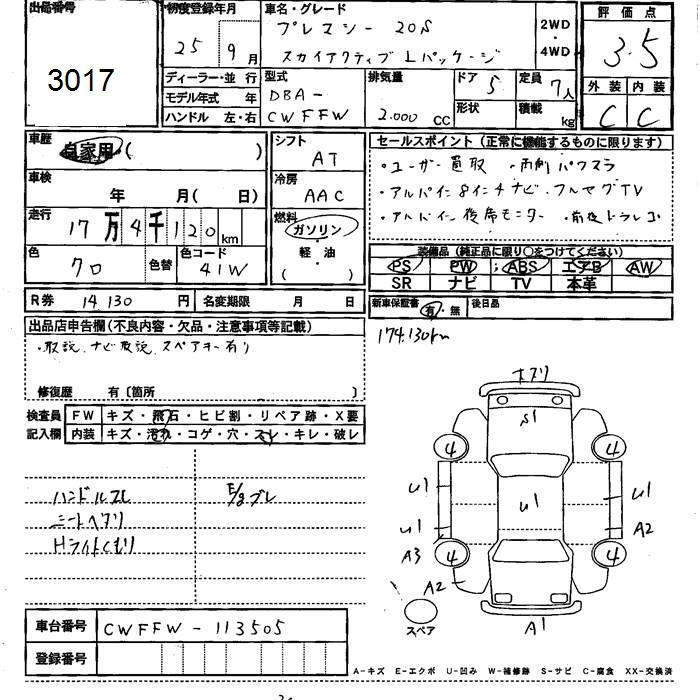 出品番号 初度登録年月 車名・グレード 評価点
3017
25年 9月
プレマシー 20S
スカイアクティブ Lパッケージ
2WD ・ 4WD
3.5
外装 内装
C C
ディーラー・並行
モデル年式 年
ハンドル 左・右
型式 DBA-CWFFW
排気量 2.000 CC
ドア 5
形状
定員 7人
積載 kg
車歴 自家用 ( )
シフト AT
車検 年 月( 日)
冷房 AAC
走行 17万4千120km
燃料 ガソリン・軽油 ( )
色 クロ 色替
色コード 41W
R券 14130円 名変期限 月 日
セールスポイント(正常に機能するものに限ります)
・ユーザー買取 ・両側パワスラ
・アルパイン8インチナビ・フルセグTV
・アルパイン後席モニター ・前後ドラレコ
装備品(純正品に限り○をつけてください)
PS PW ABS エアB AW
SR ナビ TV 本革
新車保証書 有・無 後日品
174.130km
出品店申告欄(不良内容・欠品・注意事項等記載)
・取説、ナビ取説、スペアキー有り
修復歴 有〔箇所 〕
検査員記入欄
FW キズ・飛石・ヒビ割・リペア跡・X要
内装 キズ・汚れ・コゲ・穴・スレ・キレ・破レ
ハンドルスレ E/gブレ
シートヘタリ
Hライトくもり
キズリ
S1
4 4
U1 U1 U1
U1 A2
A3 4 4
A2
スペア A1
車台番号 CWFFW-113505
登録番号
A-キズ E-エクボ U-凹み W-補修跡 S-サビ C-腐食 XX-交換済